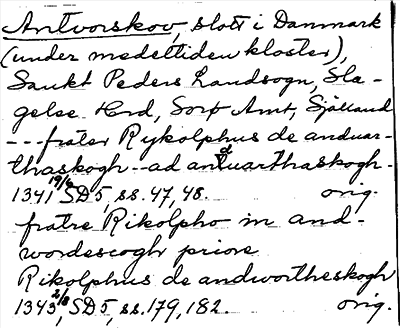 Antvorskov, slott i Danmark
(under medeltiden kloster),
Sankt Peders Landsogn, Sla-
gelse Hrd, Sorø Amt, Sjælland
--- frater Rykolphus de anduar-
thaskogh -- ad anduarthaskogh -
1341 19/8, SD 5, ss. 47, 48. orig.
fratre Rikolpho in and-
wordescogh priore
Rikolphus de andwortheskogh
1343 2/8, SD 5, ss. 179, 182. orig.